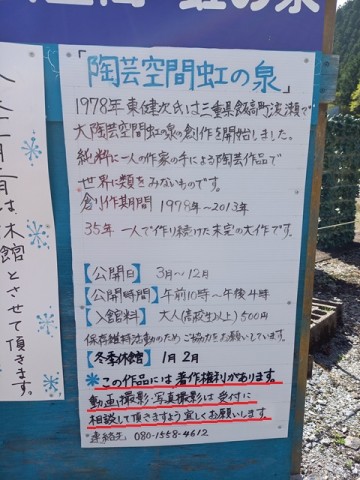 虹の泉
「陶芸空間虹の泉」
1978年 東健次氏は三重県飯高町波瀬で
大陶芸空間虹の泉の創作を開始しました。
純粋に一人の作家の手による陶芸作品で
世界に類をみないものです。
創作期間 1978年〜2013年
35年 一人で作り続けた未完の大作です。
【公開日】 3月〜12月
【公開時間】午前10時〜午後4時
【入館料】 大人(高校生以上)500円
保存維持活動のため ご協力をお願いしています。
【冬季休館】 1月 2月
※この作品には著作権利があります。
動画撮影・写真撮影は受付に
相談して頂きますよう宜しくお願いします。
連絡先 080-1558-4612
二月は休館
とさせて頂きます。